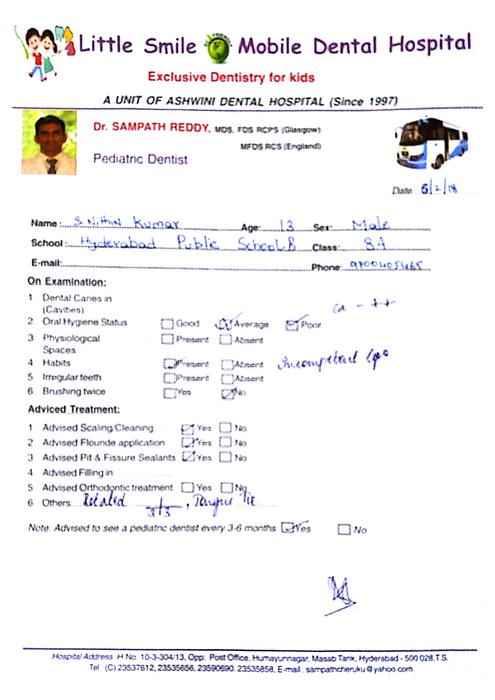 Little Smile Mobile Dental Hospital
Exclusive Dentistry for kids
A UNIT OF ASHWINI DENTAL HOSPITAL (Since 1997)
Dr. SAMPATH REDDY, MDS, FDS RCPS (Glasgow)
MFDS RCS (England)
Pediatric Dentist
Date 6/2/18
Name: S. Nithin Kumar Age: 13 Sex: Male
School: Hyderabad Public School, B Class: 8A
E-mail: Phone:
On Examination:
1 Dental Caries in (Cavities) Ca - ++
2 Oral Hygiene Status Good Average Poor
3 Physiological Spaces Present Absent
4 Habits Present Absent Incompetent lips
5 Irregular teeth Present Absent
6 Brushing twice Yes No
Adviced Treatment:
1 Advised Scaling/Cleaning Yes No
2 Advised Flouride application Yes No
3 Advised Pit & Fissure Sealants Yes No
4 Advised Filling in
5 Advised Orthodontic treatment Yes No
6 Others Tongue Tie
Note: Advised to see a pediatric dentist every 3-6 months Yes No
Hospital Address: H.No. 10-3-304/13, Opp. Post Office, Humayunnagar, Masab Tank, Hyderabad - 500 028, T.S.
Tel: (C) 23537612, 23535656, 23590690, 23535858, E-mail: sampathcheruku@yahoo.com